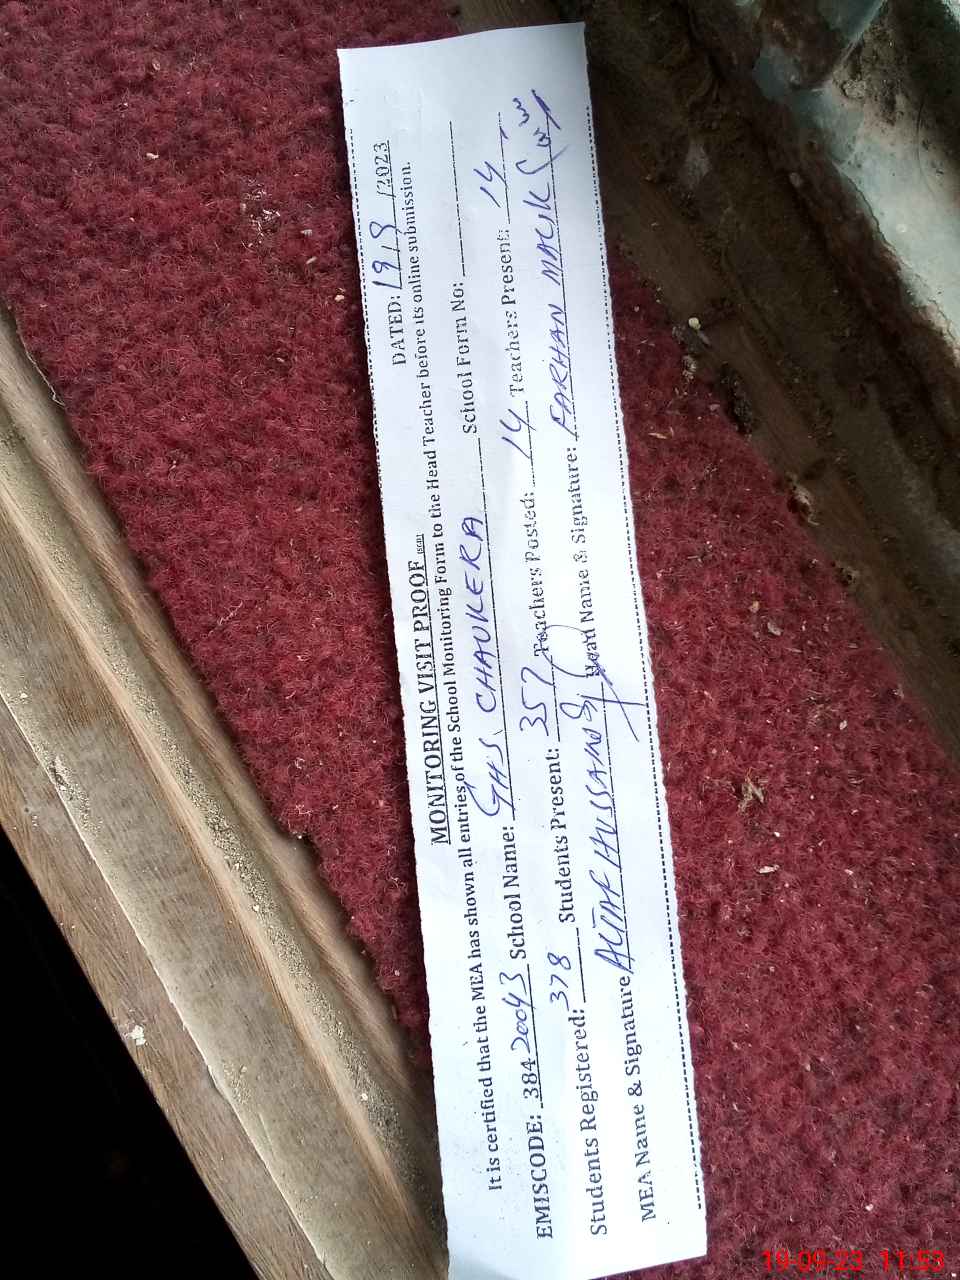 DATED: 19/9/2023
MONITORING VISIT PROOF
It is certified that the MEA has shown all entries of the School Monitoring Form to the Head Teacher before its online submission.
EMISCODE: 38420043 School Name: GHS CHAUKERA School Form No:
Students Registered: 378 Students Present: 357 Teachers Posted: 14 Teachers Present: 14
MEA Name & Signature ALTAF HUSSAIN Head Name & Signature: FARHAN MALIK
19-09-23 11:53